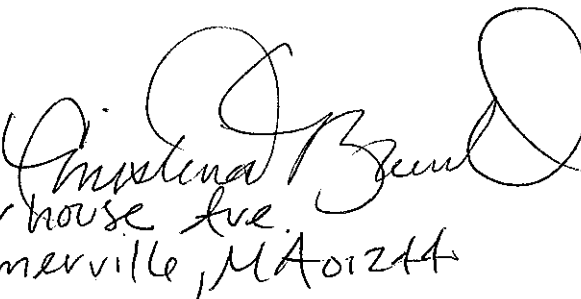 Christina
house Ave.
merville, MA 01244